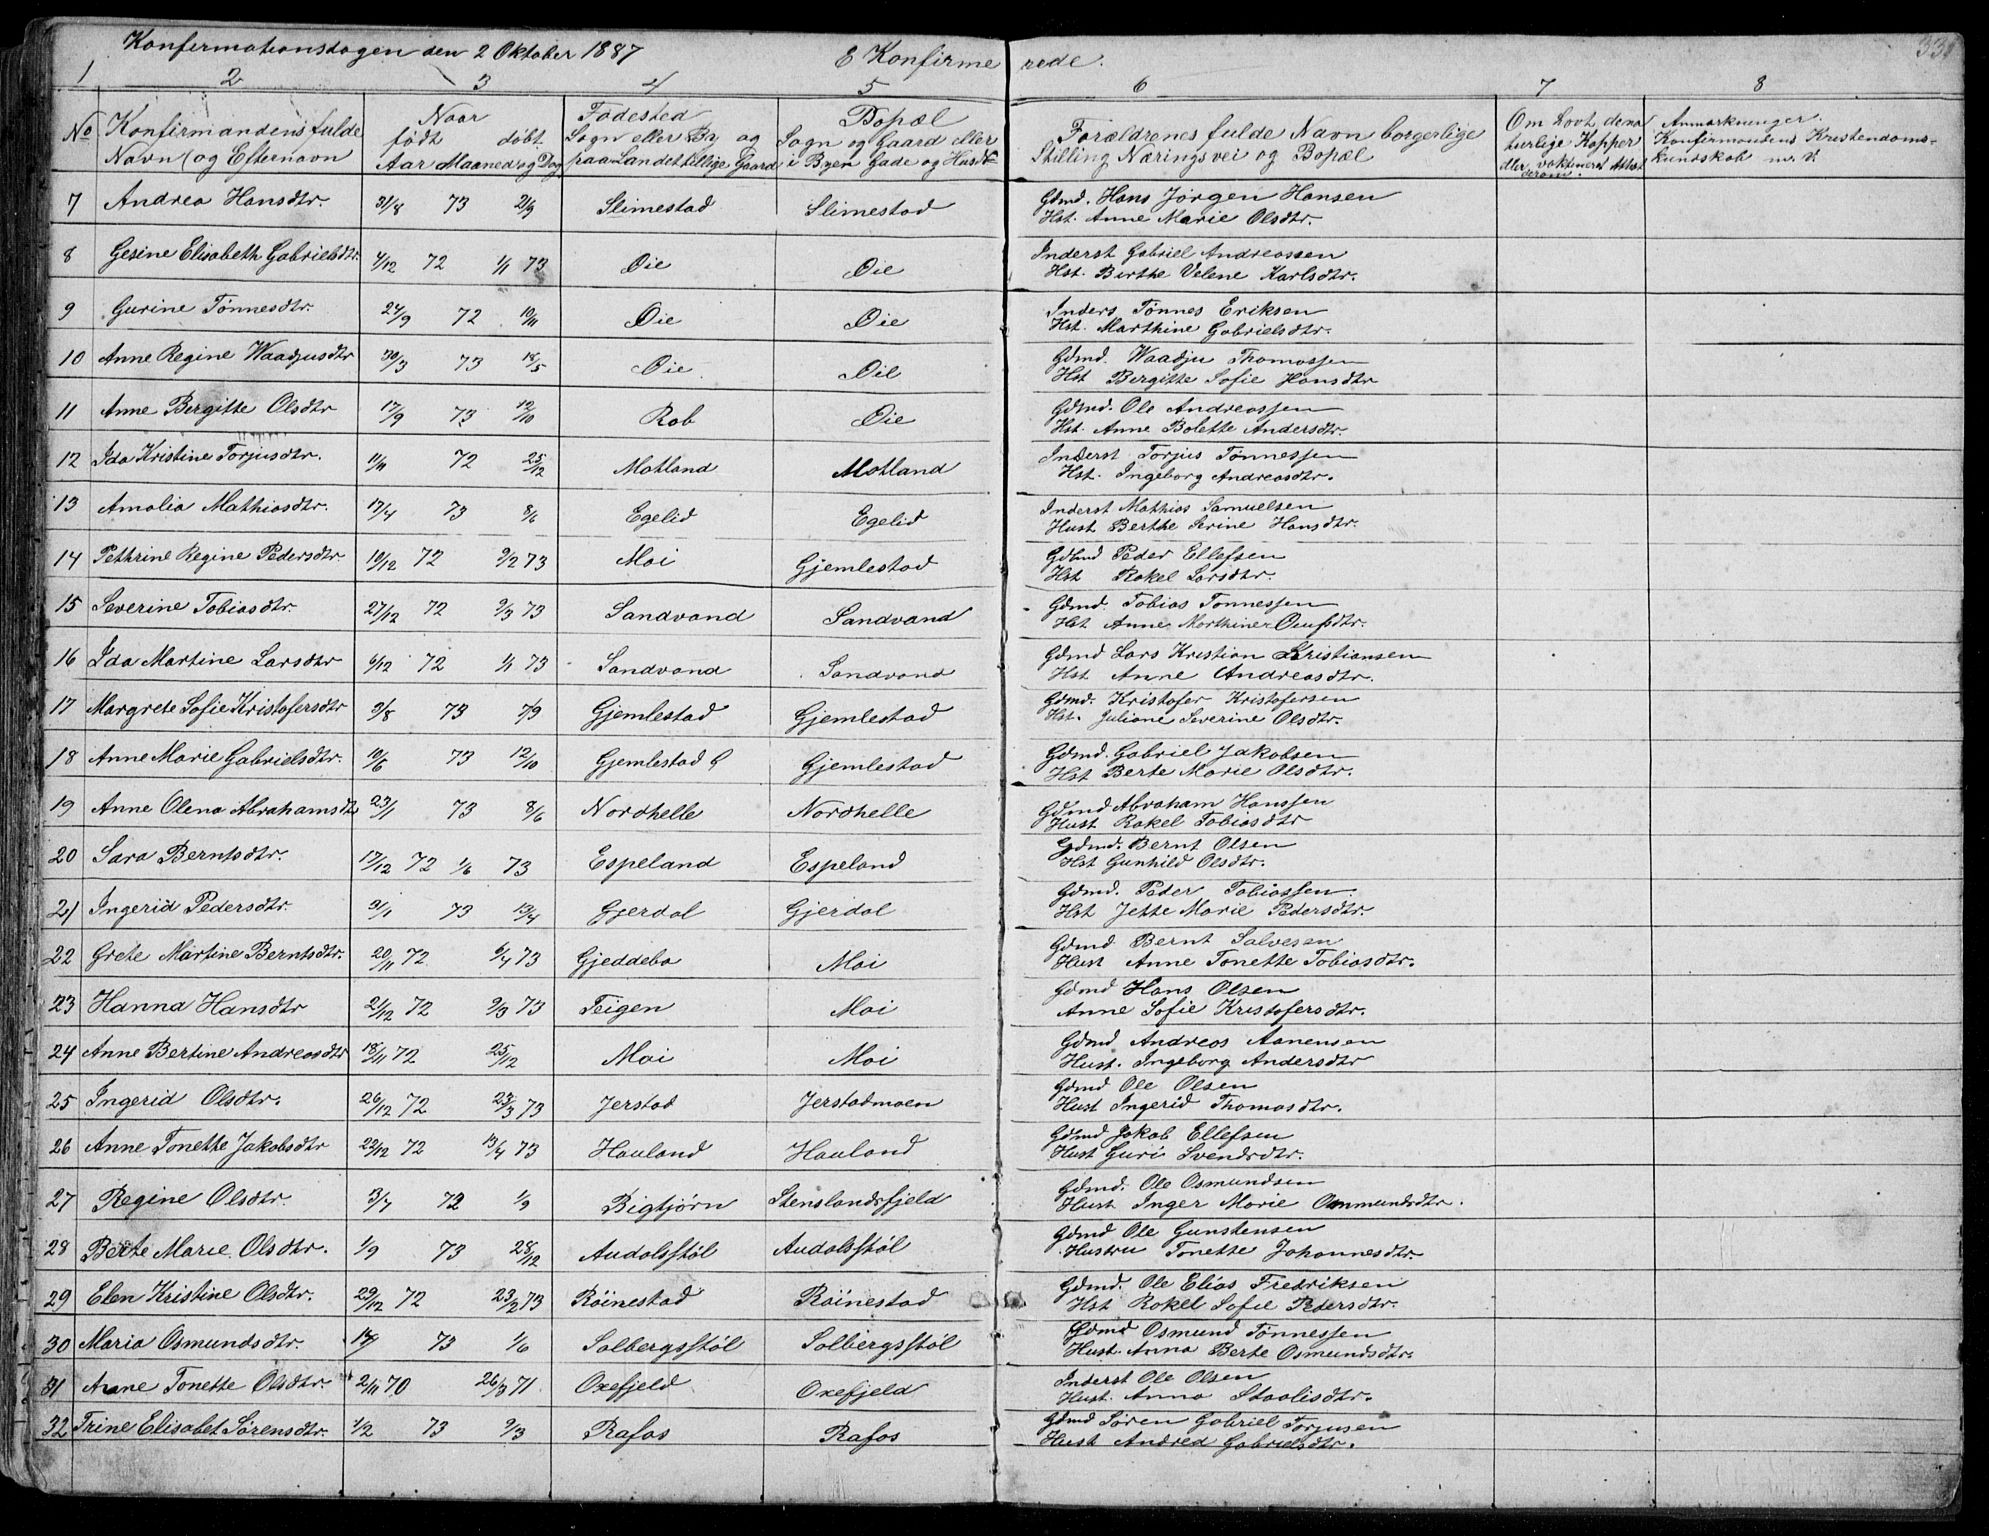 Konfirmationsdagen den 2 Oktober 1887 E Konfirmerede.
1 2 3 4 5 6 7 8
No Konfirmandens fulde Navn (og Efternavn
Naar født døbt. Aar Maaned og Dag
Fødested Sogn eller By og paa Landet tillige Gaard
Bopæl Sogn og Gaard eller i Byen Gade og Hus No
Forældrenes fulde Navn borgerlige Stilling Næringsvei og Bopæl
Om havt de naturlige Kopper eller vaksineret Attest derom.
Anmærkninger. Konfirmandens Kristendomskundskab m. v.
7 Andrea Hansdtr. 31/8 73 21/9 Slimestad Slimestad Gdmd. Hans Jørgen Hansen
Hst. Anne Marie Olsdtr.
8 Gesine Elisabeth Gabrielsdtr. 4/12 72 1/1 73 Øie Øie Inderst Gabriel Andreassen
Hst. Birthe Velene Karlsdtr.
9 Gurine Tønnesdtr. 24/9 72 10/11 Øie Øie Inders Tønnes Eriksen
Hst. Marthine Gabrielsdtr.
10 Anne Regine Waadjusdtr 30/3 73 18/5 Øie Øie Gdmd. Waadju Thomassen
Hst Bergitte Sofie Hansdtr
11 Anne Bergitte Olsdtr 17/9 73 12/10 Rob Øie Gdmd. Ole Andreassen
Hst. Anne Bolette Andersdtr.
12 Ida Kristine Torjusdtr. 11/11 72 25/12 Motland Motland Inderst Torjus Tønnessen
Hst. Ingeborg Andreasdtr.
13 Amalia Mathiasdtr. 17/4 73 8/6 Egelid Egelid Inderst Mathias Samuelsen
Hust Berthe Serine Hansdtr.
14 Pethrine Regine Pedersdtr. 19/12 72 9/2 73 Moi Gjemlestad Gdmd Peder Ellefsen
Hst Rakel Larsdtr.
15 Severine Tobiasdtr. 27/12 72 9/3 73 Sandvand Sandvand Gdmd. Tobias Tønnessen
Hst Anne Marthine Omfsdtr.
16 Ida Martine Larsdtr 6/12 72 1/1 73 Sandvand Sandvand Gdmd Lars Kristian Kristiansen
Hst Anne Andreasdtr.
17 Margrete Sofie Kristofersdtr 9/8 73 7/9 Gjemlestad Gjemlestad Gdmd. Kristofer Kristofersen
Hst. Juliane Severine Olsdtr.
18 Anne Marie Gabrielsdtr. 10/6 73 12/10 Gjemlestad Gjemlestad Gdmd. Gabriel Jakobsen
Hst Berte Marie Olsdtr.
19 Anne Olena Abrahamsdtr 23/1 73 8/6 Nordhelle Nordhelle Gdmd Abraham Hanssen
Hust Rakel Tobiasdtr
20 Sara Berntsdtr. 17/12 72 1/6 73 Espeland Espeland Gdmd. Bernt Olsen
Hst Gunhild Olsdtr.
21 Ingerid Pedersdtr. 9/1 73 13/4 Gjerdal Gjerdal Gdmd. Peder Tobiassen
Hst Jette Marie Pedersdtr.
22 Grete Martine Berntsdtr. 20/11 72 6/4 73 Gjeddebo Moi Gdmd Bernt Salvesen
Hust Anne Tonette Tobiasdtr.
23 Hanna Hansdtr 21/12 72 9/3 73 Teigen Moi Gdmd Hans Olsen
Anne Sofie Kristofersdtr.
24 Anne Bertine Andreasdtr 18/11 72 25/12 Moi Moi Gdmd Andreas Aanensen
Hust. Ingeborg Andersdtr
25 Ingerid Olsdtr. 26/12 72 23/3 73 Jerstad Jerstadmoen Gdmd Ole Olsen
Hust Ingerid Thomasdtr.
26 Anne Tonette Jakobsdtr 22/12 72 13/4 73 Hauland Hauland Gdmd Jakob Ellefsen
Hust Guri Svendsdtr.
27 Regine Olsdtr. 3/7 72 1/9 Bigtjørn Stenslandsfjeld Gdmd. Ole Osmundsen
Hust Inger Marie Ommundsdtr.
28 Berte Marie Olsdtr. 1/9 73 28/12 Audalsstøl Audalsstøl Gdmd Ole Gunstensen
Hustru Tonette Johannesdtr.
29 Elen Kristine Olsdtr. 29/12 72 23/2 73 Røinestad Røinestad Gdmd. Ole Elias Fredriksen
Hst Rakel Sofie Pedersdtr.
30 Maria Osmundsdtr. 73 1/6 Solbergsstøl Solbergsstøl Gdmd Osmund Tønnessen
Hust. Anna Berte Osmundsdtr.
31 Anne Tonette Olsdtr. 2/11 70 26/3 71 Oxefjeld Oxefjeld Inderst Ole Olsen
Hust. Anna Staalisdtr.
32 Trine Elisabet Sørensdtr. 1/2 73 9/3 Rafos Rafos Gdmd Søren Gabriel Torjusen
Hust Andrea Gabrielsdtr.